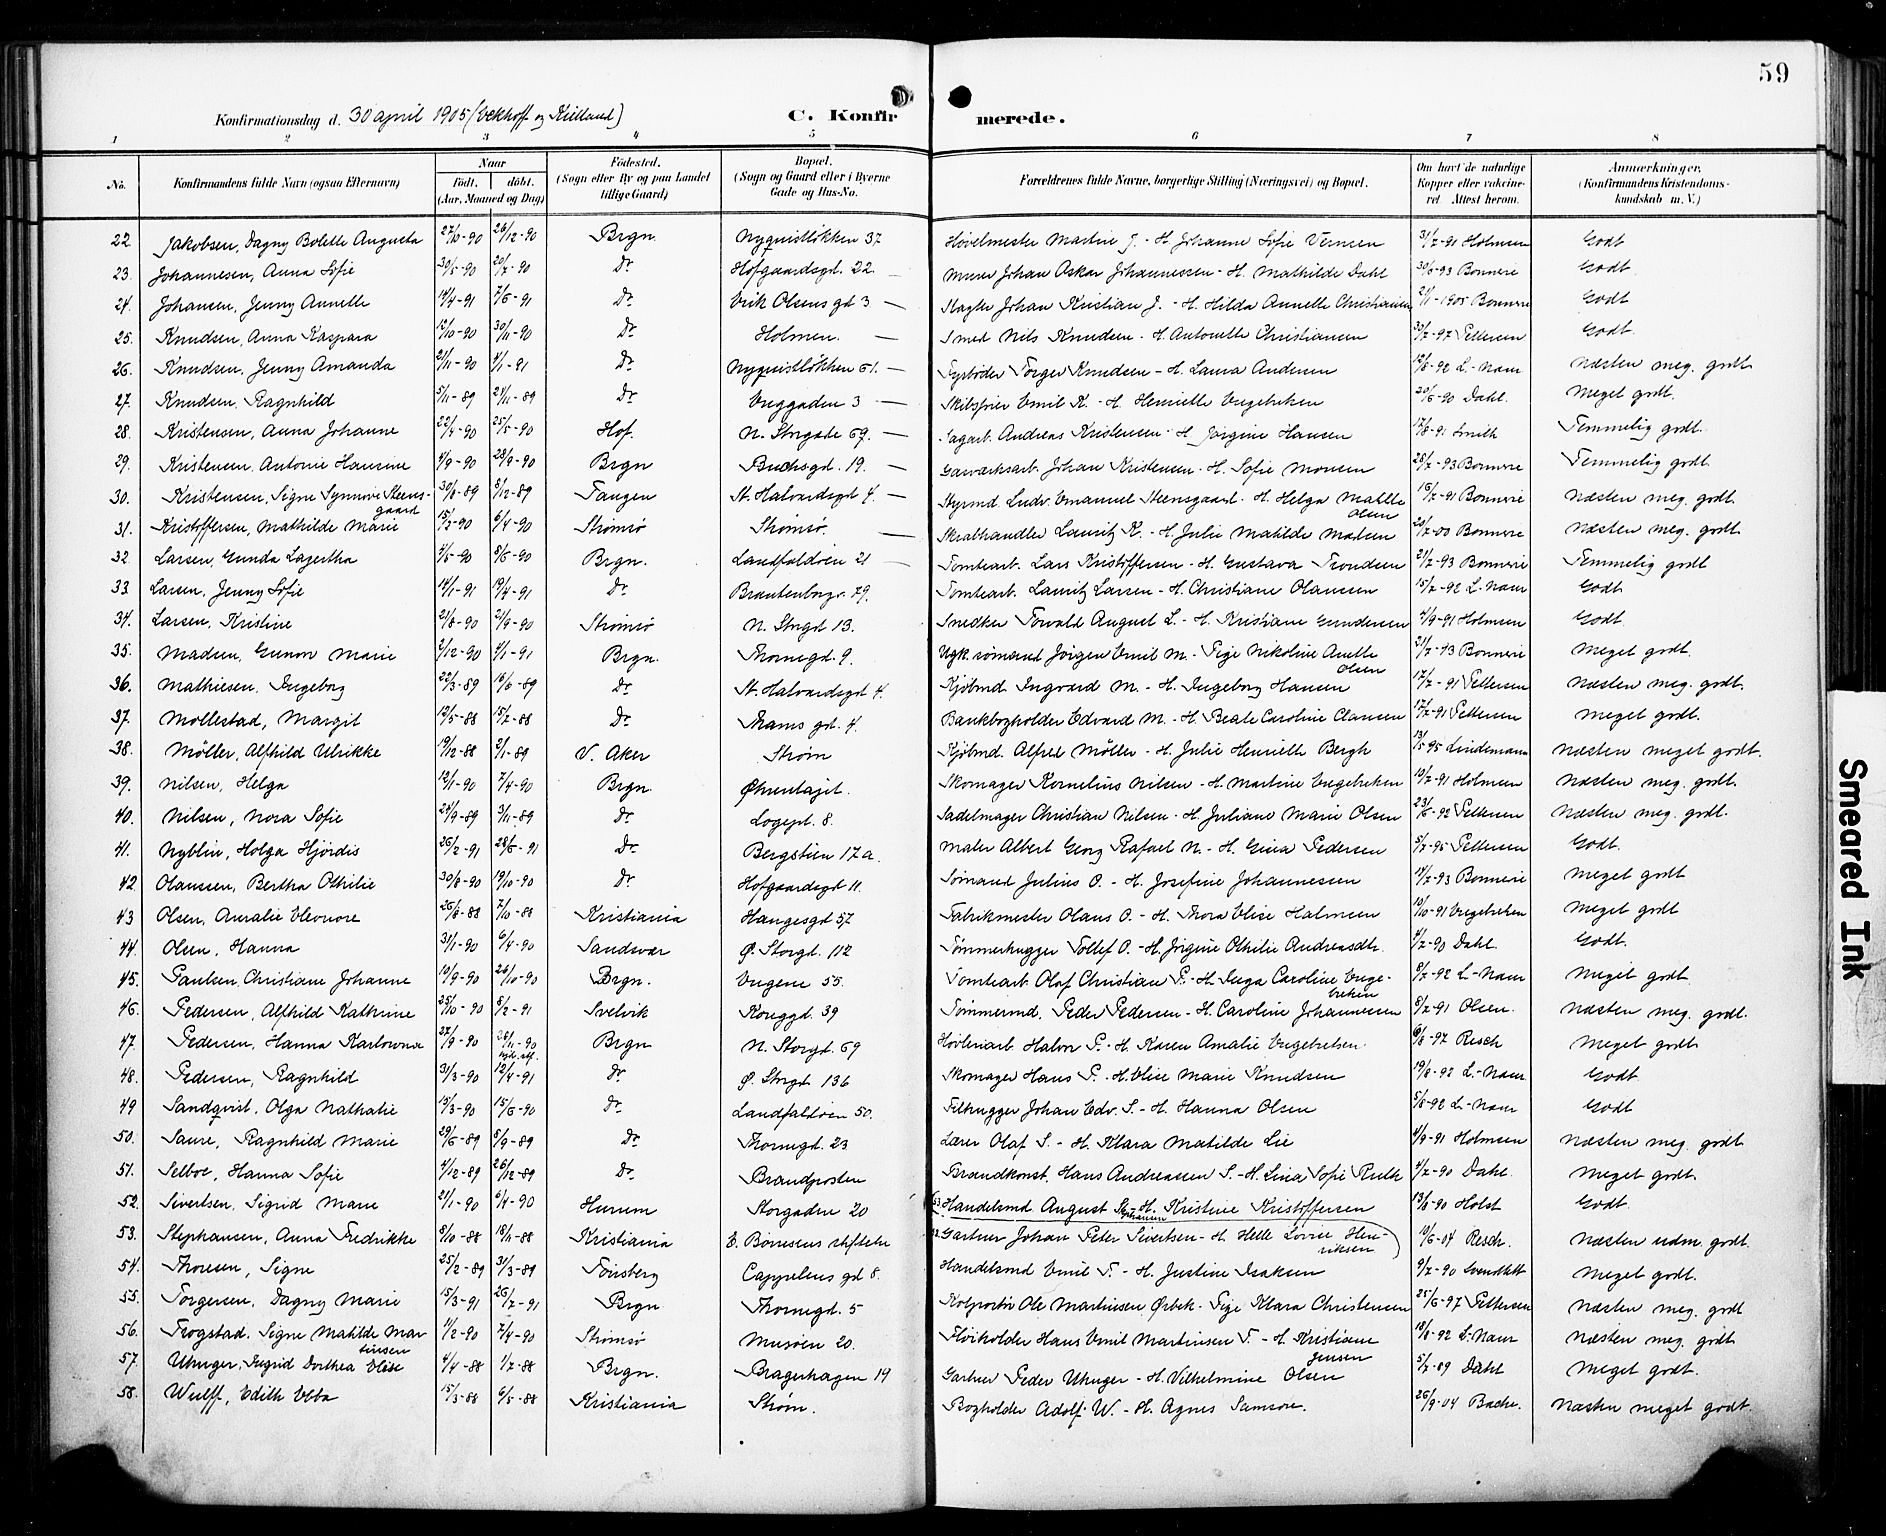 59
Konfirmationsdag d. 30 april 1905 (Eckhoff og Kielland)
C. Konfirmerede.
1 2 3 4 5 6 7 8
No. Konfirmandens fulde Navn (ogsaa Efternavn) Naar Födt. döbt. (Aar, Maaned og Dag) Födested. (Sogn eller By og paa Landet tillige Gaard) Bopæl. (Sogn og Gaard eller i Byerne Gade og Hus-No. Forældrenes fulde Navne, borgerlige Stilling (Næringsvei) og Bopæl. Om havt de naturlige Kopper eller vakcineret. Attest herom. Anmærkninger, (Konfirmandens Kristendomskundskab m. V.)
22. Jakobsen, Dagny Bolette Augusta 27/10-90 26/12-90 Brgn. Nyquistløkken 37 Høvelmester Martin J. - H. Johanne Sofie 31/7-91 Holmsen Godt
23. Johannesen, Anna Sofie 30/5-90 20/7-90 Do Hofgaardsgd. 22. Murer Johan Oskar Johannessen - H. Mathilde Dahl 30/6-93 Bonnevie Godt
24. Johansen, Jenny Annette 14/4-91 7/6-91 Do Erik Olsens gd 3 — Slagter Johan Kristian J. - H. Hilda Annette Christiansen 21/1-1905 Bonnevie Godt
25. Knudsen, Anna Kaspara 12/10-90 30/11-90 Do Holmen. — Smed Nils Knudsen - H. Antonette Christiansen 30/7-97 Pettersen Godt.
26. Knudsen, Jenny Amanda 21/11-90 4/1-91 Do Nyquistløkken 61. — Fyrbøder Torger Knudsen - H. Laura Andersen 12/8-92 L.-Nam Næsten meg. godt
27. Knudsen, Ragnhild 5/11-89 24/11-89 Do Enggaden 3 — Skibsfører Emil K. - H. Henriette Engebretsen 20/6-90 Dahl. Meget godt.
28. Kristensen, Anna Johanne 22/4-90 25/5-90 Hof. N. Storgade 69. — Sagarb. Andreas Kristensen - H. Jørgine Hansen 17/8-91 Smith Temmelig godt.
29. Kristensen, Antonie Hansine 4/9-90 28/9-90 Brgn Buchsgd. 19. — Gasværksarb. Johan Kristensen - H. Sofie Monsen 28/7-93 Bonnevie Temmelig godt.
30. Kristensen, Signe Synnøve Steensgaard 30/8-89 8/12-89 Tangen St. Halvardsgd 4. — Styrmd. Ludv. Emanuel Steensgaard. H. Helga Mathilde Olsen 16/7-91 Bonnevie Næsten meg. godt.
31. Kristoffersen, Mathilde Marie 15/3-90 6/4-90 Strømsø Strømsø. — Skrabhandler Lauritz K. - H. Julie Matilde Madsen 20/7-00 Bonnevie Næsten meg. godt.
32. Larsen, Gunda Lagertha 4/5-90 8/6-90 Brgn. Landfaldøen 21 — Tomtearb. Lars Kristoffersen - H. Gustava Trondsen 21/7-93 Bonnevie Temmelig godt
33. Larsen, Jenny Sofie 14/1-91 19/4-91 Do Brantenborgr. 79. Tomtearb. Lauritz Larsen - H. Christiane Olaussen 15/7-92 L.-Nam Godt
34. Larsen, Kristine 21/8-90 21/9-90 Strømsø N. Storgd. 13. Snedker Torvald August L. - H. Kristiane Gundersen 4/9-91 Holmsen Godt.
35. Madsen, Gunvor Marie 2/12-90 4/1-91 Brgn. Thornegd. 9. Ugk. sømand Jørgen Emil M. - Pige Nikoline Anette Olsen 21/7-93 Bonnevie Meget godt.
36. Mathiesen, Ingeborg 22/3-89 16/6-89 Do St. Halvardsgd 4. Kjøbmd. Ingvard M. - H. Ingeborg Hansen 17/7-91 Pettersen Næsten meg. godt.
37. Møllestad, Margit 19/5-88 15/7-88 Do Thams gd. 4. Bankbogholder Edvard M. - H. Beate Caroline Clausen 17/7-91 Pettersen Meget godt.
38. Møller, Alfhild Ulrikke 19/12-88 2/1-89 V. Aker Strøm Kjøbmd. Alfred Møller - H. Julie Henriette Bergh 13/5 95 Lindemann Næsten meget godt.
39. Nilsen, Helga 12/1-90 7/4-90 Brgn. Øhrentajet. Skomager Kornelius Nilsen - H. Martine Engebretsen 19/7-91 Holmsen Næsten meg. godt.
40. Nilsen, Nora Sofie 24/9-89 3/11-89 Do Logegd. 8. Sadelmager Christian Nilsen - H. Juliane Marie Olsen 23/6-92 Pettersen Næsten meg. godt.
41. Nyblin, Holga Hjørdis 26/2-91 28/6-91 Do Bergstien 17a. Maler Albert Georg Rafael N. - H. Gina Pedersen 5/7-95 Pettersen Godt.
42. Olaussen, Bertha Othilie 30/8-90 19/10-90 Do Hofgaardsgd 11. Sømand Julius O. - H. Josefine Johannessen 14/7-93 Bonnevie Meget godt
43 Olsen, Auralie Eleonore 26/8-88 7/10-88 Kristiania Haugesgd 57 Fabrikmester Olaus O. - H. Thora Elise Halmsen 10/10-91 Engebretsen Meget godt
44. Olsen, Hanna 31/1-90 6/4-90 Sandsvær Ø. Storgd. 112 Tømmerhugger Tollef O. - H. Jørgine Othilie Andreasdtr. 4/7-90 Dahl. Godt.
45. Paulsen, Christiane Johanne 19/9-90 26/10-90 Brgn. Engene 55. Tomtearb. Olaf Christian P. - H. Inga Caroline Engebretsen 8/7-92 L.-Nam Meget godt.
46. Pedersen, Alfhild Kathrine 25/10-90 8/2-91 Svelvik Konggd. 39 Tømmermd. Peder Pedersen - H. Caroline Johannessen 8/7-91 Olsen. Næsten meg. godt.
47. Pedersen, Hanna Karlowna 27/9-90 28/11-90 Brgn N. Storgd. 69 Høvleriarb. Halvor P. - H. Karen Amalie Engebretsen 6/8-97 Resch Meget godt
48. Pedersen, Ragnhild 31/3-90 12/4-91 Do Ø. Strgd. 136 Skomager Hans P. - H. Elise Marie Knudsen 19/8-92 L.-Nam Godt
49 Sandqvist, Olga Nathalie 13/3-90 15/6-90 Do Landfaldøen 50. Filhugger Johan Edv. S. - H. Hanna Olsen 5/8-92 L.-Nam Godt
50. Saure, Ragnhild Marie 29/6-89 8/9-89 Do Thornegd. 23 Lærer Olaf S. - H. Klara Matilde Lie 4/9-91 Holmsen Næsten meg. godt
51. Selboe, Hanna Sofie 4/12-89 26/12-89 Do Brandposten Brandkonst. Hans Andreassen S. - H. Lina Sofie Ruth 4/7-90 Dahl. Meget godt.
52. Sivertsen, Sigrid Marie 21/1-90 6/4-90 Hurum Storgaden 20 53 Handelsmd August Stephansen - H. Kristine Kristoffersen 13/8-90 Holst Godt.
53. Stephansen, Anna Fredrikke 8/10-88 18/11-88 Kristiania E. Børresens stiftelse 52 Gartner Johan Peter Sivertsen - H. Helle Lovise Henriksen 10/6-04 Resch. Næsten udm. godt.
54. Thoresen, Signe 25/2-89 31/3-89 Tønsberg Cappelens gd 8. Handelsmd Emil T. - H. Justine Isaksen 9/7-90 Meget godt.
55. Torgersen, Dagny Marie 15/3-91 26/7-91 Brgn Thornegd. 5 Kolportør Ole Martinsen Ørbek - Pige Klara Christensen 25/6-97 Pettersen Næsten meg. godt
56. Trogstad, Signe Matilde Martinsen 11/2-90 7/4-90 Strømsø Musøen 20. Fløikolder Hans Emil Martinsen T. - H. Kristiane Jensen 18/8-92 L.-Nam Næsten meg. godt
57. Utunger, Ingrid Dorthea Elise 4/4-88 1/7-88 Brgn. Bragerhagen 19 Gartner Peder Utunger - H. Vilhelmine Olsen 5/7-89 Dahl Meget godt.
58. Wulff, Edith Ebba 15/3-88 6/5-88 Kristiania Strøm. Bogholder Adolf W. - H. Agnes Samsøe. 26/9-04 Bache. Næsten meget godt.
Smeared Ink